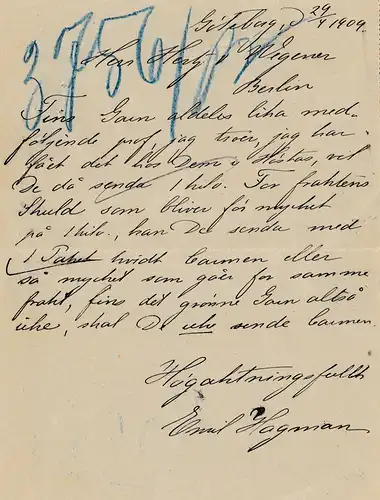 Göteborg, d 29/4 1909.
3756/
Herr Herz & Wegener
Berlin
Fins Garn aldeles lika med-
føljende prof, jag troer, jag har
fået det hos Dem i Høstas, vil
De då senda 1 kilo. For fraktens
skuld som bliver før mycket
på 1 kilo, kan De senda med
1 Paket hvidt Garnen eller
så mycket som går for samme
frakt, fins det grønne Garn altså
icke, skal De icke sende Garnen.
Høgaktningsfullt
Emil Hagman